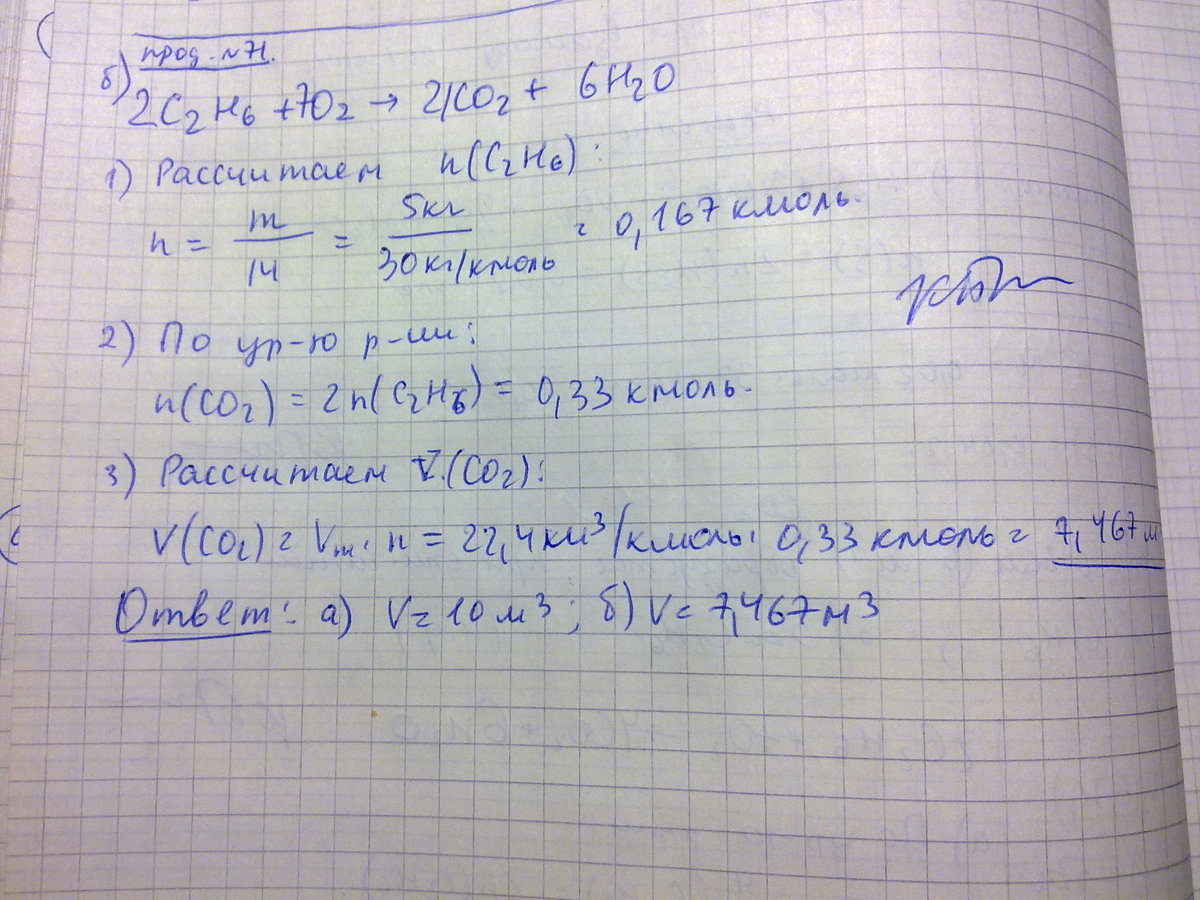 прод. №71.
б) 2C₂H₆ + 7O₂ → 4CO₂ + 6H₂O
1) Рассчитаем n(C₂H₆):
n = m/M = 5кг/30кг/кмоль = 0,167 кмоль.
2) По ур-ю р-ии:
n(CO₂) = 2n(C₂H₆) = 0,33 кмоль.
3) Рассчитаем V(CO₂):
V(CO₂) = Vm · n = 22,4 км³/кмоль · 0,33 кмоль = 7,467 м
Ответ: а) V = 10 м³; б) V = 7,467 м³